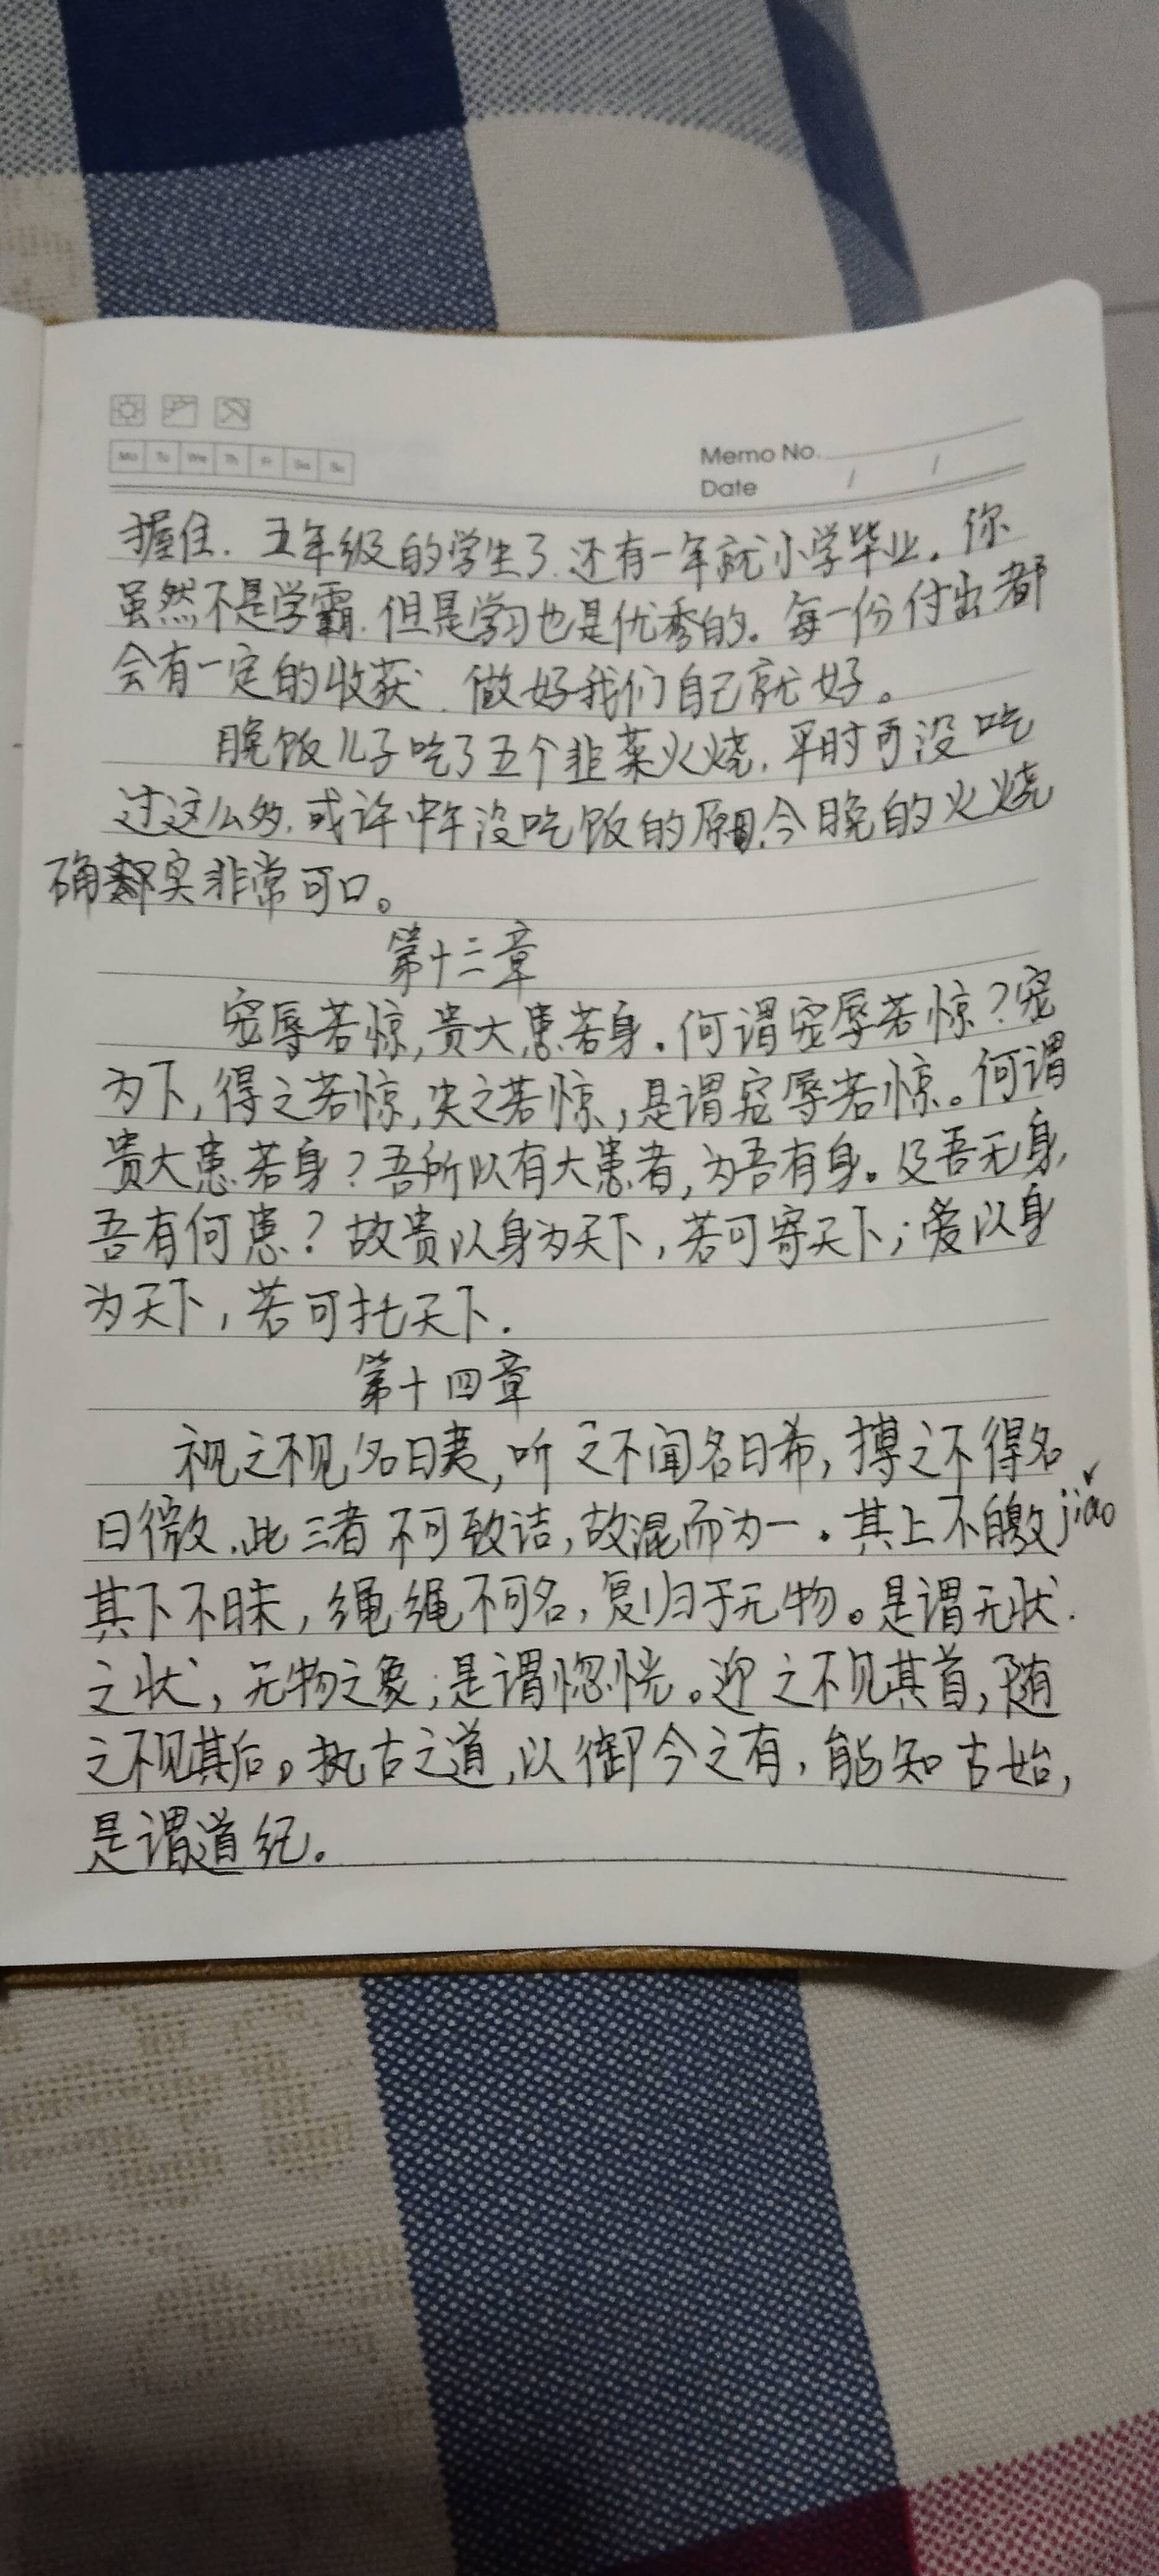 Mo Tu We Th Fr Sa Su
Memo No.
Date / /
握住. 五年级的学生了.还有一年就小学毕业。你
虽然不是学霸.但是学习也是优秀的。每一份付出都
会有一定的收获.做好我们自己就好。
晚饭儿子吃了五个韭菜火烧.平时可没吃
过这么多.或许中午没吃饭的原因.今晚的火烧
确实非常可口。
第十三章
宠辱若惊,贵大患若身.何谓宠辱若惊?宠
为下,得之若惊,失之若惊,是谓宠辱若惊。何谓
贵大患若身?吾所以有大患者,为吾有身。及吾无身,
吾有何患?故贵以身为天下,若可寄天下;爱以身
为天下,若可托天下.
第十四章
视之不见名曰夷,听之不闻名曰希,搏之不得名
曰微.此三者不可致诘,故混而为一.其上不皦jiǎo
其下不昧,绳绳不可名,复归于无物。是谓无状.
之状,无物之象,是谓惚恍。迎之不见其首,随
之不见其后。执古之道,以御今之有,能知古始,
是谓道纪.